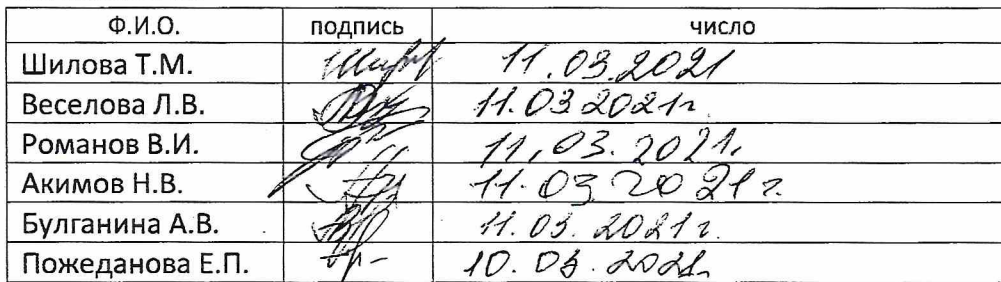 Ф.И.О. подпись число
Шилова Т.М. 11.03.2021
Веселова Л.В. 11.03.2021г.
Романов В.И. 11,03.2021,
Акимов Н.В. 11.03.2021г.
Булганина А.В. 11.03.2021г.
Пожеданова Е.П. 10.03.2021